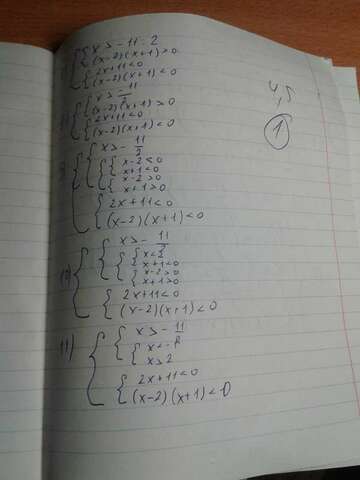 x > -11 - 2
(x-2)(x+1) > 0
2x+11 < 0
(x-2)(x+1) < 0
x > -11/2
(x-2)(x+1) > 0
2x+11 < 0
(x-2)(x+1) < 0
x > -11/2
x-2 < 0
x+1 < 0
x-2 > 0
x+1 > 0
2x+11 < 0
(x-2)(x+1) < 0
10)
x > -11/2
x < 2
x+1 < 0
x-2 > 0
x+1 > 0
2x+11 < 0
(x-2)(x+1) < 0
11)
x > -11
x > 2
2x+11 < 0
(x-2)(x+1) < 0
4,5
1